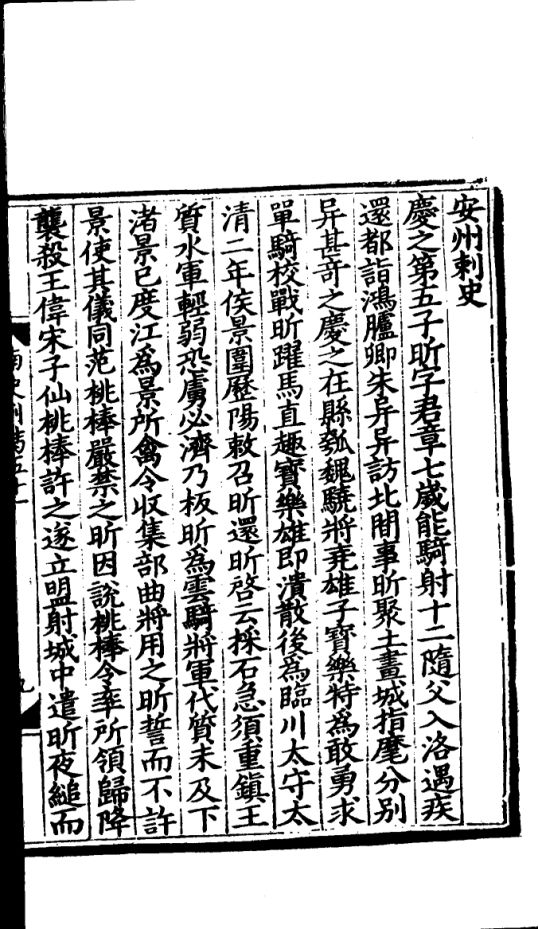 安州刺史
慶之第五子昕字君章七歲能騎射十二隨父入洛遇疾
還都詣鴻臚卿朱异异訪北間事昕聚土畫城指麾分別
异甚奇之慶之在縣瓠魏驍將堯雄子寶樂特為敢勇求
單騎校戰昕躍馬直趣寶樂雄即潰散後為臨川太守太
清二年侯景圍歷陽敕召昕還昕啓云採石急須重鎮王
質水軍輕弱恐虜必濟乃板昕為雲騎將軍代質未及下
渚景已度江為景所禽令收集部曲將用之昕誓而不許
景使其儀同范桃棒嚴禁之昕因說桃棒令率所領歸降
襲殺王偉宋子仙桃棒許之遂立盟射城中遣昕夜縋而
南史列傳五十一
九